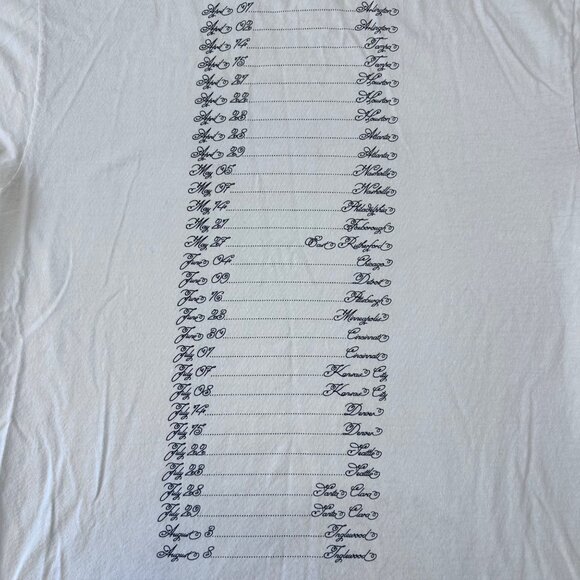 April 01......Arlington
April 02......Arlington
April 14......Tampa
April 15......Tampa
April 21......Houston
April 22......Houston
April 23......Houston
April 28......Atlanta
April 29......Atlanta
May 05......Nashville
May 07......Nashville
May 14......Philadelphia
May 21......Foxborough
May 27......East Rutherford
June 04......Chicago
June 09......Detroit
June 16......Pittsburgh
June 23......Minneapolis
June 30......Cincinnati
July 01......Cincinnati
July 07......Kansas City
July 08......Kansas City
July 14......Denver
July 15......Denver
July 22......Seattle
July 23......Seattle
July 28......Santa Clara
July 29......Santa Clara
August 3......Inglewood
August......Inglewood